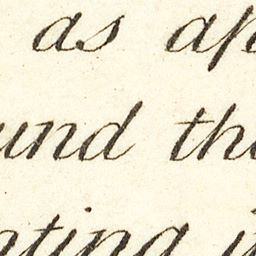 as ap
und the
nting i